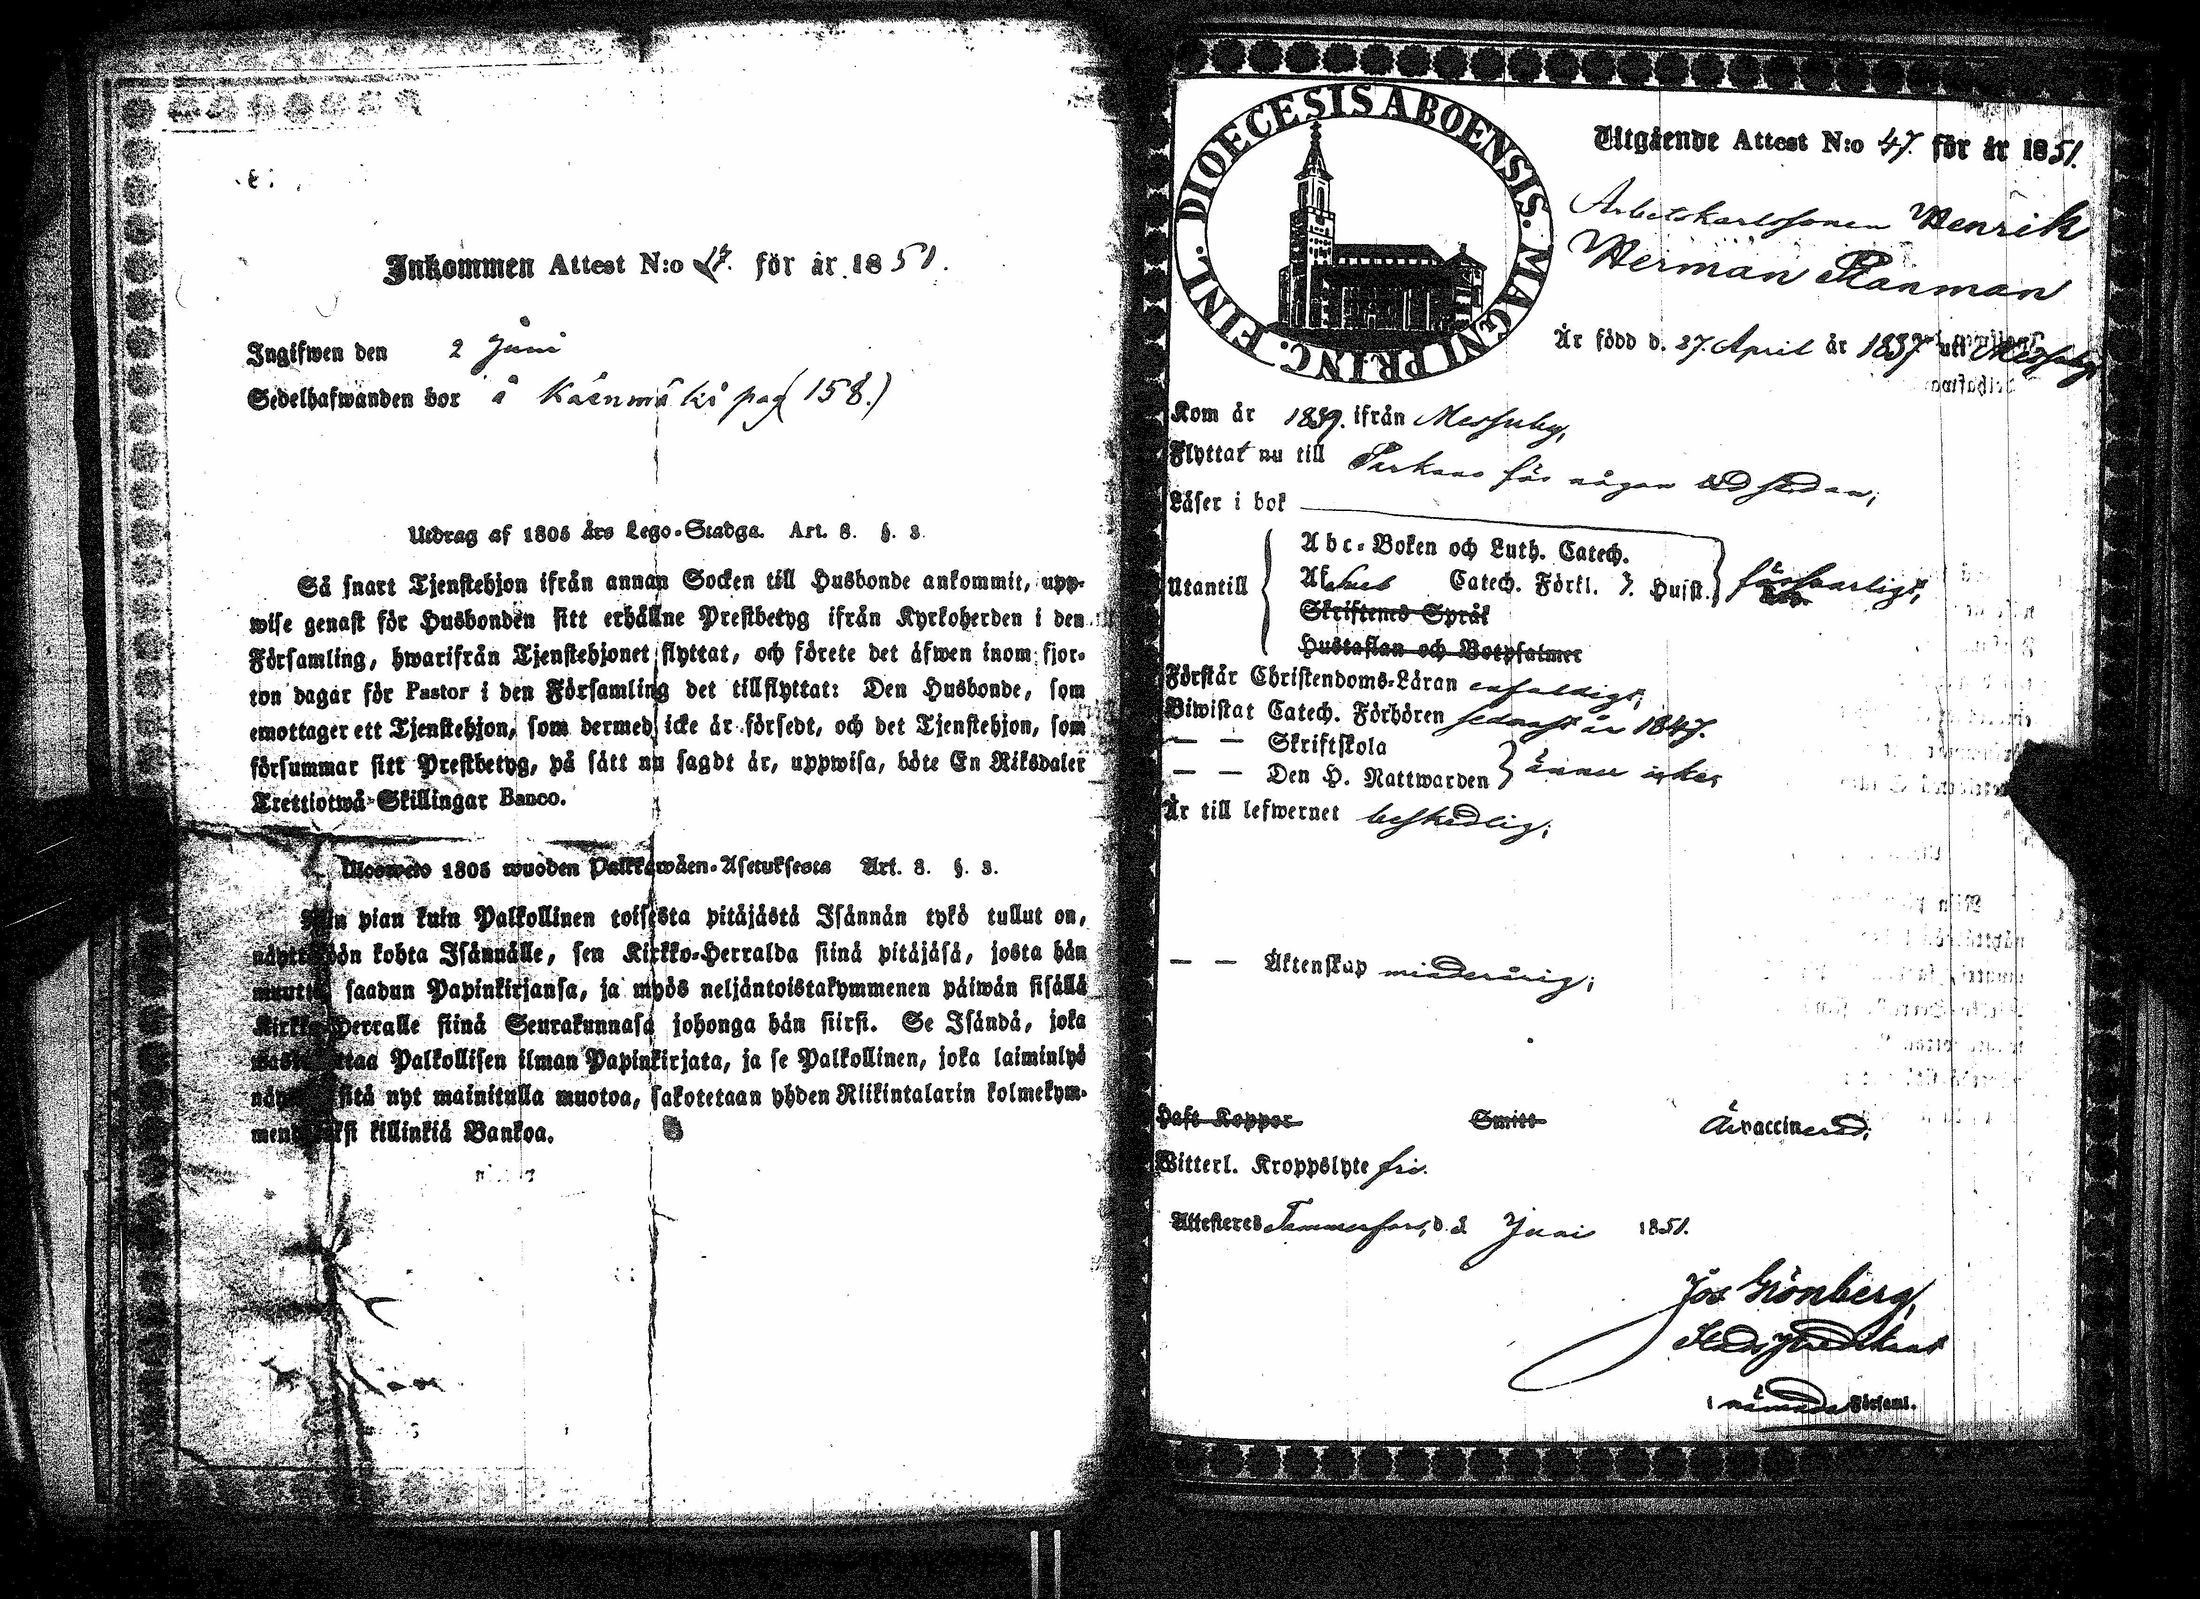 Inkommen Attest N:o 17. för år 1851.
Ingifwen den 2 Juni
Sedelhafwanden bor å Käenmäki pag (158.)
Utdrag af 1805 års Lego-Stadga. Art. 8. §. 3.
Så snart Tjenstehjon ifrån annan Socken till Husbonde ankommit, upp-
wise genast för Husbonden sitt erhållne Prestbetyg ifrån Kyrkoherden i den
Församling, hwarifrån Tjenstehjonet flyttat, och förete det äfwen inom fjor-
ton dagar för Pastor i den Församling det tillflyttat: Den Husbonde, som
emottager ett Tjenstehjon, som dermed icke är försedt, och det Tjenstehjon, som
försummar sitt Prestbetyg, på sätt nu sagdt är, uppwisa, böte En Riksdaler
Trettiotwå Skillingar Banco.
Ulosweto 1805 wuoden Palkkawäen-Asetuksesta Art. 8. §. 3.
Niin pian kuin Palkollinen toisesta pitäjästä Isännän tykö tullut on,
kohta Isännälle, sen Kirkko-Herralda siinä pitäjäsä, josta hän
saadun Papinkirjansa, ja myös neljäntoistakymmenen päiwän sisällä
Kirkko-Herralle siinä Seurakunnasa johonga hän siirsi. Se Isändä, joka
Palkollisen ilman Papinkirjata, ja se Palkollinen, joka laiminlyö
sitä nyt mainitulla muotoa, sakotetaan yhden Riikintalarin kolmekym-
killinkiä Bankoa.
DIOECESIS ABOENSIS. MAGNI PRINC. FINL.
Utgående Attest N:o 47. för år 1851.
Arbetskarlssonen Henrik
Herman Ranman
Är född d. 27. April år 1837 uti Messuby,
Kom år 1839. ifrån Messuby,
Flyttat nu till Parkano för någon tid sedan;
Läser i bok
Utantill
Abc-Boken och Luth. Catech.
Catech. Förkl. Hujst. försvarligt,
Skriftenes Språk
Hustaflan och Botpsalmer
Förstår Christendoms-Läran enfaldigt;
Biwistat Catech. Förhören sednast år 1847.
— — Skriftskola
— — Den H. Nattwarden ännu icke;
Är till lefwernet beskedlig;
— — Äktenskap minderårig;
Haft Koppor Smitt Är vaccinerad;
Witterl. Kroppslyte fri.
Attesteres Tammerfors, d. 2 Juni 1851.
Jos Grönberg,
Stadspredikant
i nämnda Församl.